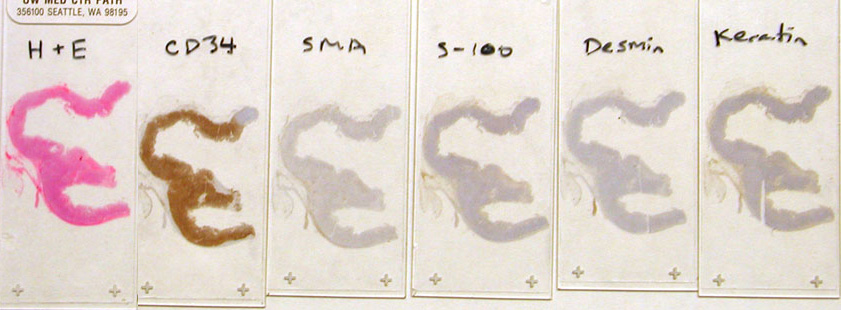 UW MED CTR PATH
356100 SEATTLE, WA 98195
H + E
CD34
SMA
S-100
Desmin
Keratin